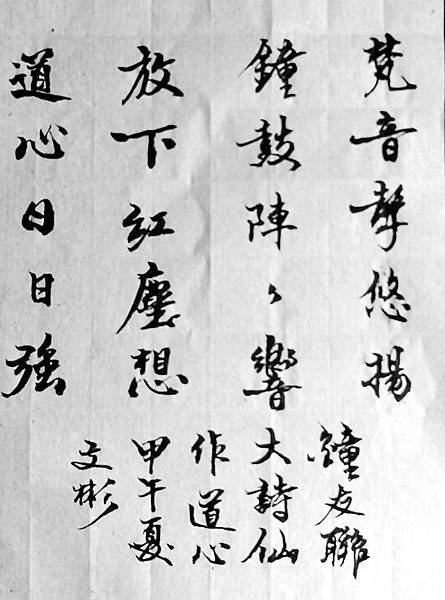 梵音聲悠揚
鐘鼓陣々響
放下紅塵想
道心日日強
鐘友聯
大詩仙
作道心
甲午夏
文彬